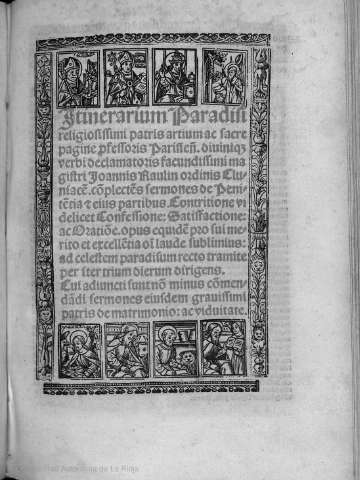 Itinerarium Paradisi
religiosissimi patris artium ac sacre
pagine ꝓfessoris Parisieñ. diuiniqꝫ
verbi declamatoris facundissimi ma
gistri Joannis Raulin ordinis Clu
niaceñ. cõplectẽs sermones de Peni
tẽtia ⁊ eius partibus. Contritione vi
delicet Confessione: Satisfactione:
ac Oratiõe. opus equidẽ pro sui me
rito et excellẽtia oĩ laude sublimius:
ad celestem paradisum recto tramite
per iter trium dierum dirigens.
Cui adiuncti sunt nõ minus cõmen
dãdi sermones eiusdem grauissimi
patris de matrimonio: ac viduitate.
Autónoma de La Rioja